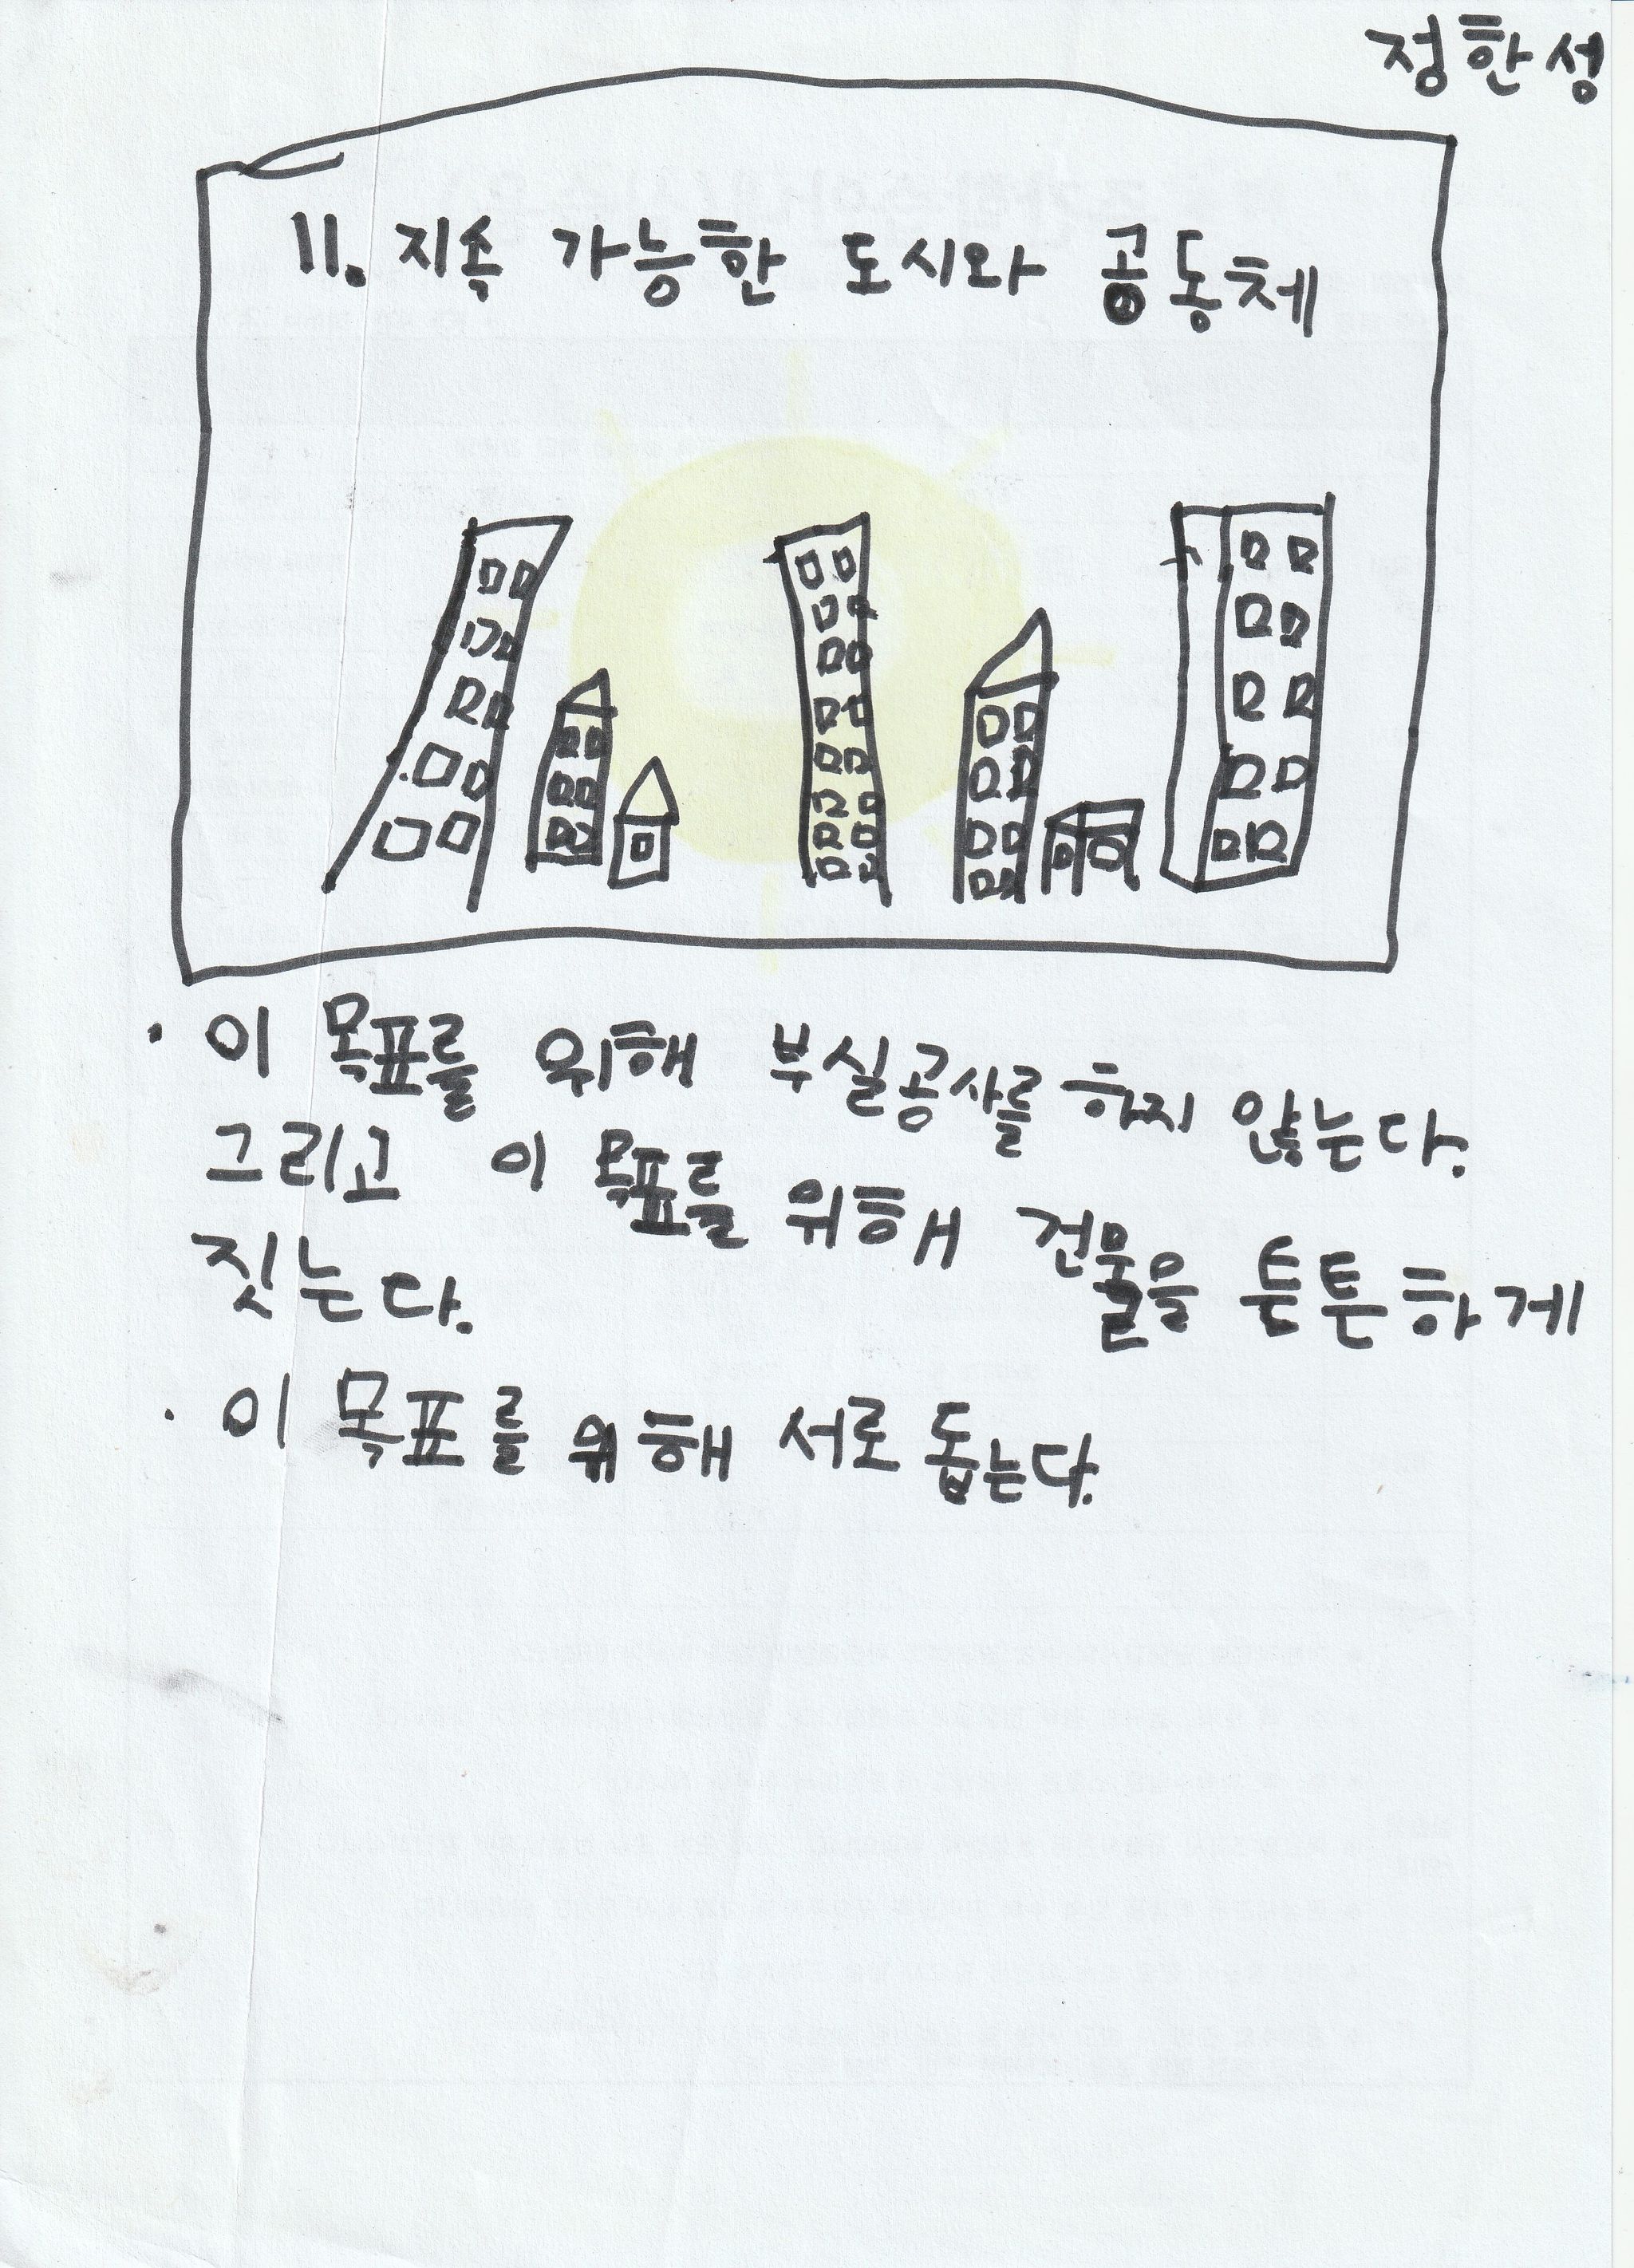 정한성
11. 지속 가능한 도시와 공동체
· 이 목표를 위해 부실공사를 하지 않는다.
그리고 이 목표를 위해 건물을 튼튼하게
짓는다.
· 이 목표를 위해 서로 돕는다.